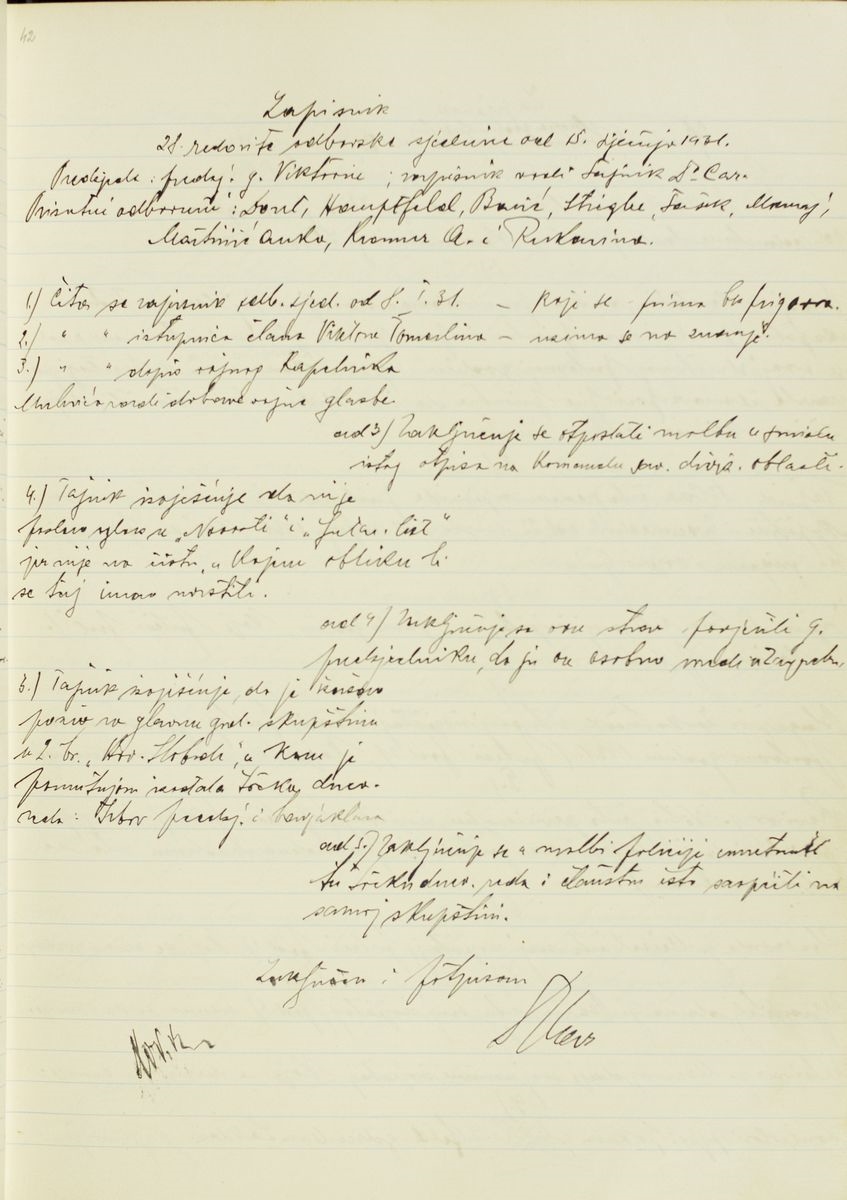 42
Zapisnik
28. redovite odborske sjednice od 15. siječnja 1931.
Predsjeda: predsj. g. Viktorin; zapisnik vodi tajnik Dr Car.
Prisutni odbornici: Dont, Hauptfeld, Banić, Striegl, Tašek,
Martinić Anka, Kramer A. i Rukavina.
1.) Čita se zapisnik odb. sjed. od 8. I. 31. – koji se prima bez prigovora.
2.) " " istupnica člana Viktora Tomerlina – uzima se na znanje.
3.) " " dopis vojnog kapelnika
radi dobave vojne glazbe.
ad 3) Zaključuje se otposlati molbu u smislu
istog otpisa na Komandu sav. diviz. oblasti.
4.) Tajnik izvješćuje da nije
predao oglas u „Novosti" i „Jutar. list"
jer nije na čistu, u kojem obliku bi
se taj imao uvrstiti.
ad 4) Zaključuje se ovu stvar povjeriti g.
predsjedniku, da ju on osobno uredi u Zagrebu.
5.) Tajnik izvješćuje, da je
poziv na glavnu god. skupštinu
u 2. br. „Hrv. Slobode", u kom je
pomutnjom izostala točka dnev.
reda: Izbor predsj. i barjaktara
ad 5.) Zaključuje se u molbi policiji umetnuti
tu točku dnev. reda i članstvu isto saopćiti na
samoj skupštini.
Zaključeno i potpisano